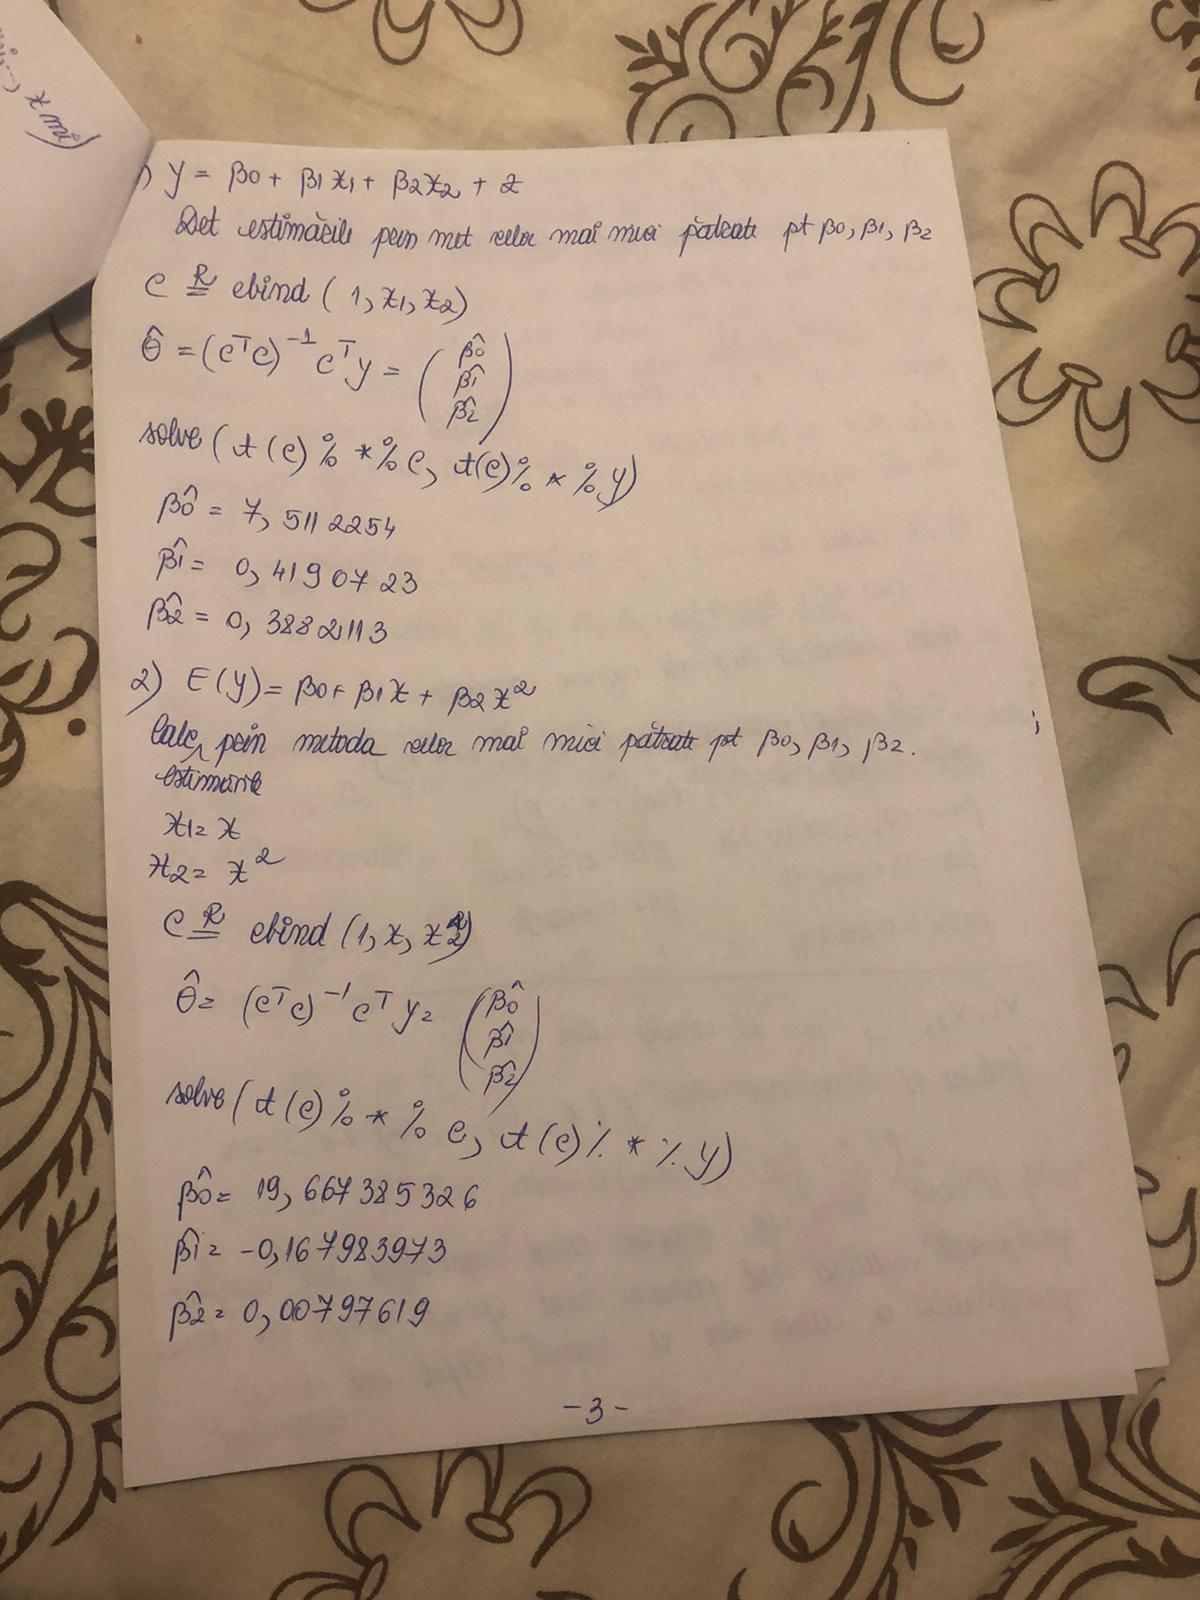 ) y = β0 + β1 x1 + β2 x2 + z
Det estimările prin met celor mai mici pătrate pt β0, β1, β2
C R= cbind (1, x1, x2)
θ̂ = (cᵀc)⁻¹ cᵀ y = (β̂0 β̂1 β̂2)
solve (t(c) %*% c, t(c) %*% y)
β̂0 = 7,5112254
β̂1 = 0,4190723
β̂2 = 0,3882113
2) E(y) = β0 + β1 x + β2 x²
Calc prin metoda celor mai mici pătrate pt β0, β1, β2.
estimările
x1 = x
x2 = x²
C R= cbind (1, x, x²)
θ̂ = (cᵀc)⁻¹ cᵀ y = (β̂0 β̂1 β̂2)
solve (t(c) %*% c, t(c) %*% y)
β̂0 = 19,667385326
β̂1 = -0,167983973
β̂2 = 0,00797619
-3-